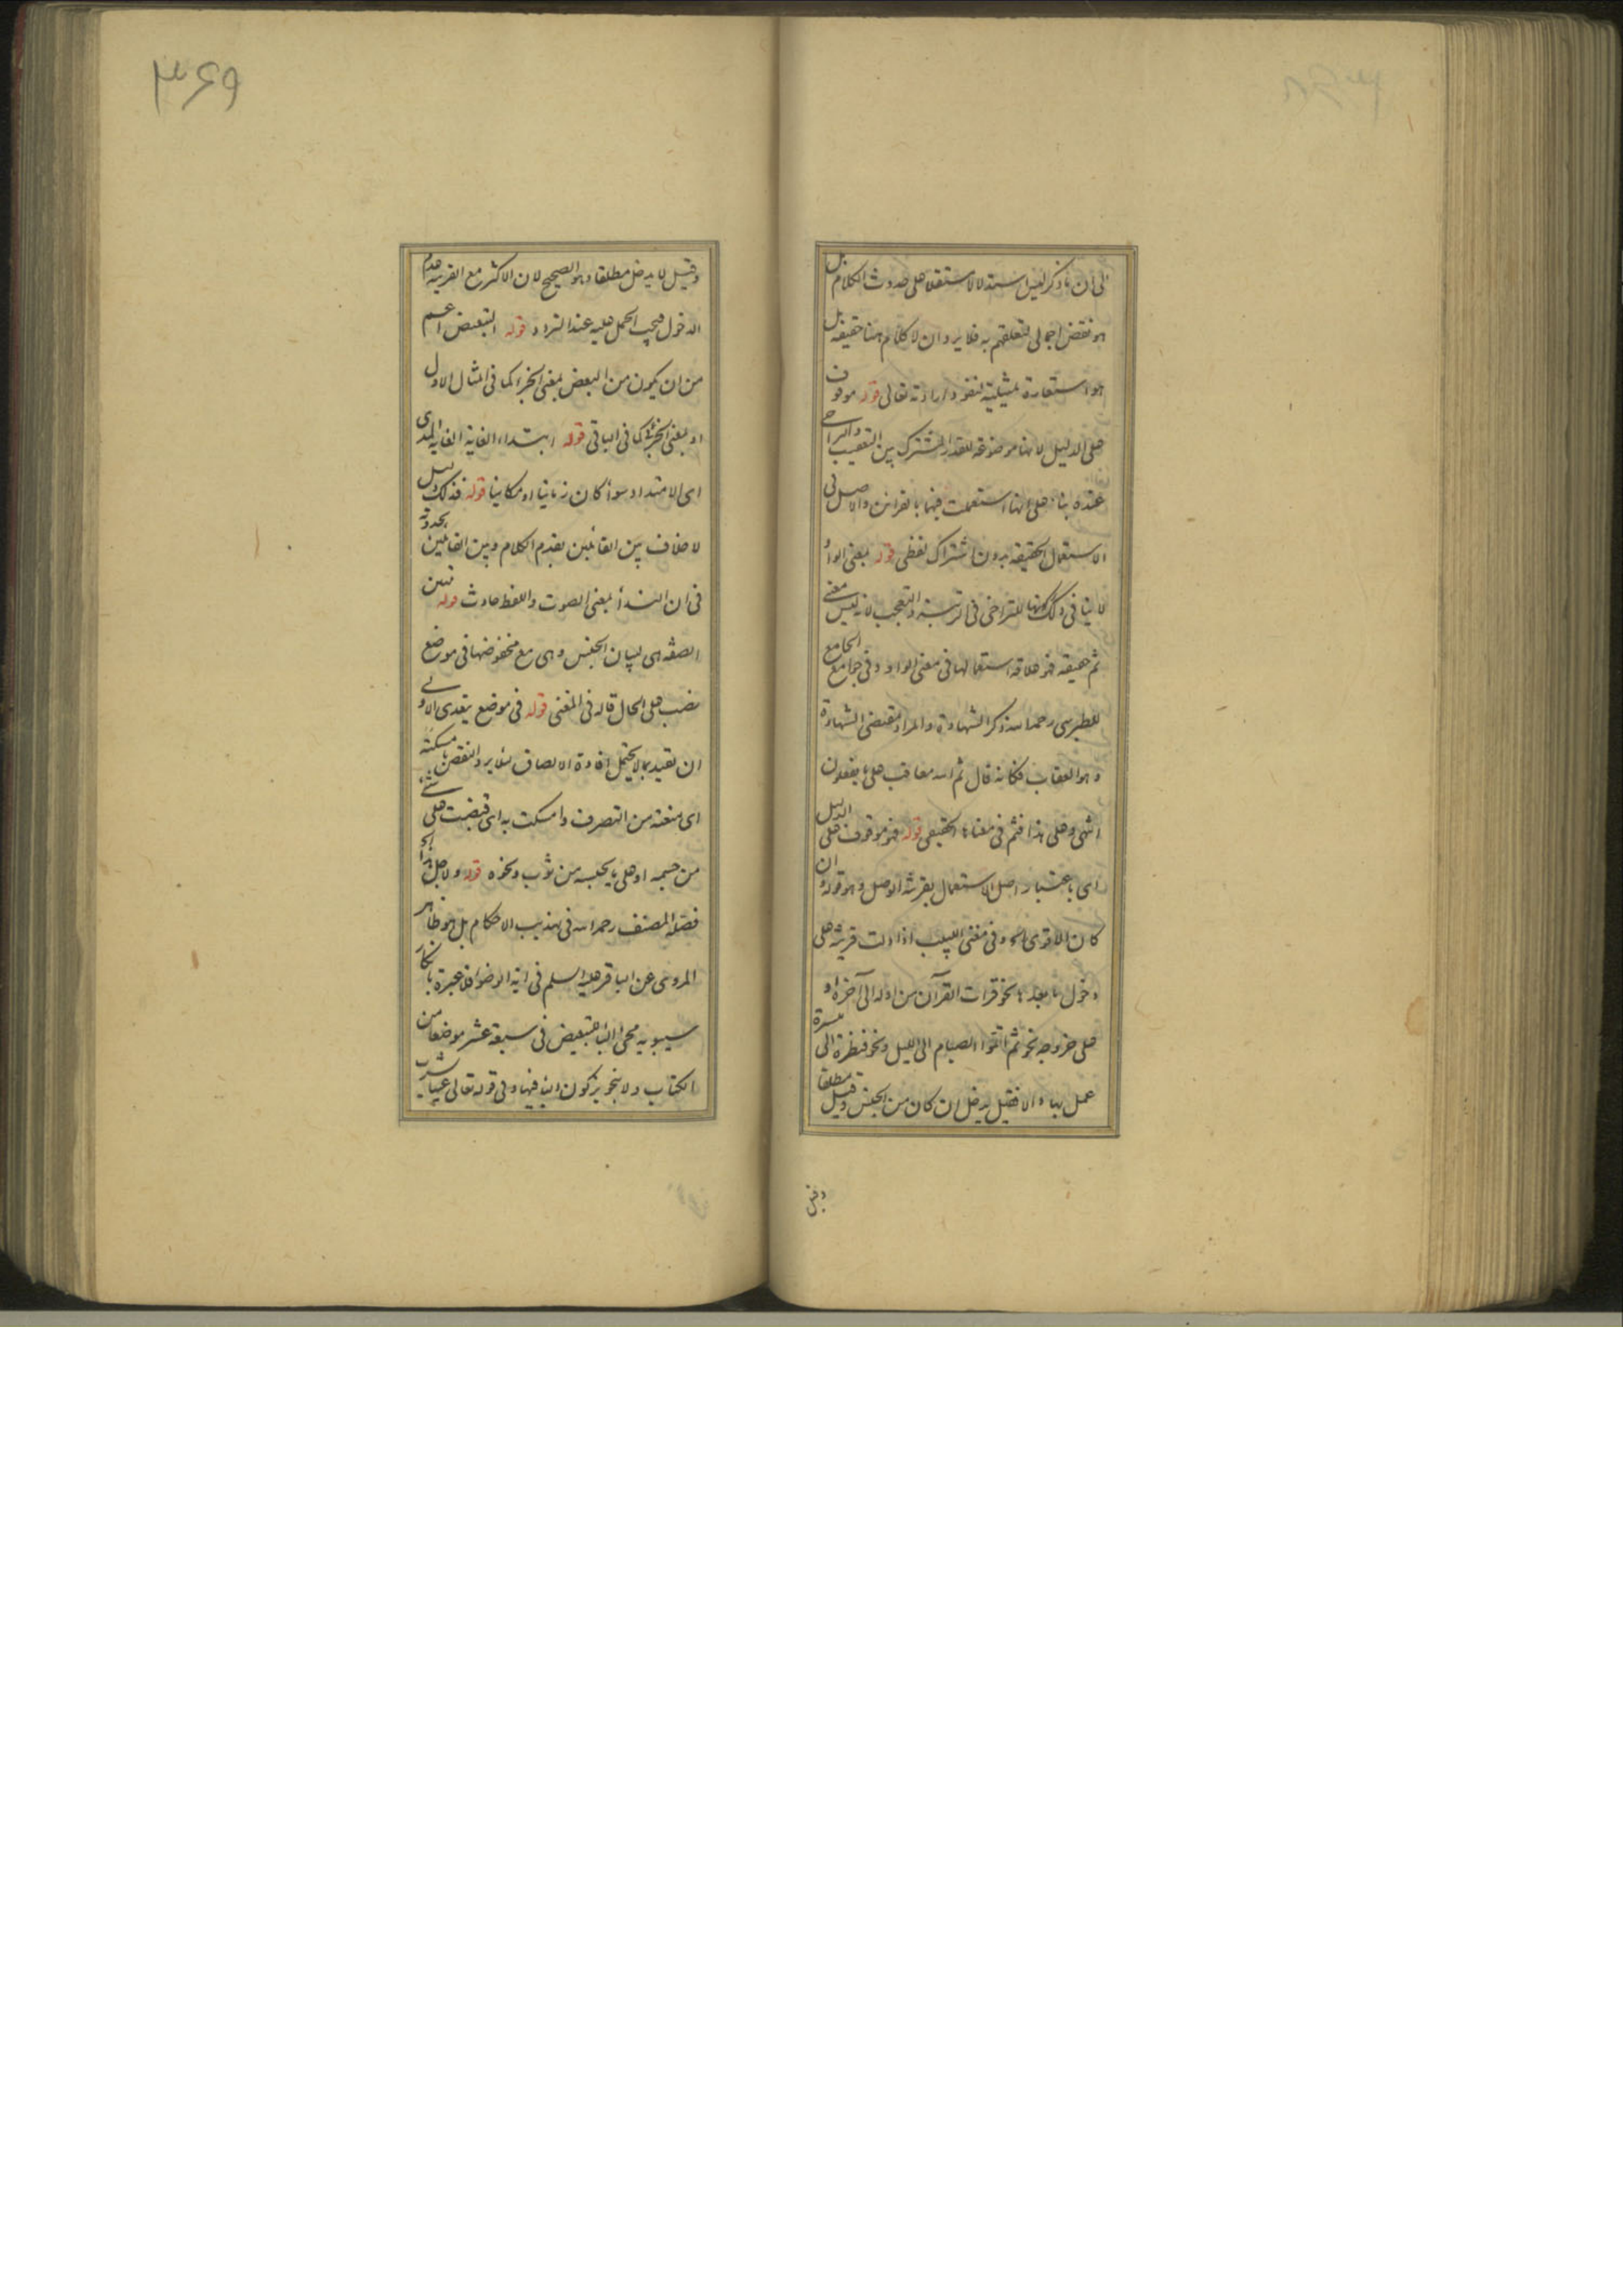 الی ان ما ذکر لیس استدلالا مستقلا علی حدوث الکلام بل
هو نقض اجمالی لتعلقهم به فلا یرد ان لا کلام هنا حقیقة بل
هو استعارة تمثیلیة لنفوذ ارادته تعالی قوله موقوف
علی الدلیل لانها موضوعة للقدر المشترک بین التعقیب والتراخی
عنده بناء علی انها استعملت فیهما بالقرائن والاصل فی
الاستعمال الحقیقة بدون اشتراک لفظی قوله بمعنی الواو
لا ینافی ذلک کونها للتراخی فی الرتبة والتعجب لانه لیس معنی
ثم حقیقة فهو علاقة استعمالها فی معنی الواو وفی جوامع الجامع
للطبرسی رحمه الله ذکر الشهادة والمراد مقتضی الشهادة
وهو العقاب فکانه قال ثم الله معاقب علی ما یفعلون
انتهی وعلی هذا فثم فی معناه الحقیقی قوله فهو موقوف علی الدلیل
ای باعتبار اصل الاستعمال بقرینة الوصل وهو قوله وان
کان الاقوی الخ وفی مغنی اللبیب اذا دلت قرینة علی
دخول ما بعدها نحو قرات القرآن من اوله الی آخره او
علی خروجه نحو ثم اتموا الصیام الی اللیل ونحو فنظرة الی میسرة
عمل بها والا فقیل یدخل ان کان من الجنس وقیل مطلقا
وقیل
۳۶۹
وقیل لا یدخل مطلقا وهو الصحیح لان الاکثر مع القرینة عدم
الدخول فیجب الحمل علیه عند التردد قوله التبعیض اعم
من ان یکون من البعض بمعنی الجزء کما فی المثال الاول
او بمعنی الجزئی کما فی الباقی قوله ابتداء الغایة الغایة المدی
ای الامتداد سواء کان زمانیا او مکانیا قوله فذلک دلیل
لا خلاف بین القائلین بقدم الکلام وبین القائلین بحدوثه
فی ان النداء بمعنی الصوت واللفظ حادث قوله تبیین
الصفة هی لبیان الجنس وهی مع مخفوضها فی موضع
نصب علی الحال قاله فی المغنی قوله فی موضع یتعدی الاولی
ان تقید بما لا یحتمل افادة الالصاق لئلا یرد النقض بامسکته
ای منعته من التصرف وامسکت به ای قبضت علی شیء
من جسمه او علی ما یحبسه من ثوب ونحوه قوله ولاجل هذا الخ
فصله المصنف رحمه الله فی تهذیب الاحکام بل هو ظاهر
المروی عن الباقر علیه السلم فی آیة الوضوء فلا عبرة بانکار
سیبویه مجیء الباء للتبعیض فی سبعة عشر موضعا من
الکتاب ولا بتجویز کون الباء فیها وفی قوله تعالی عینا یشرب